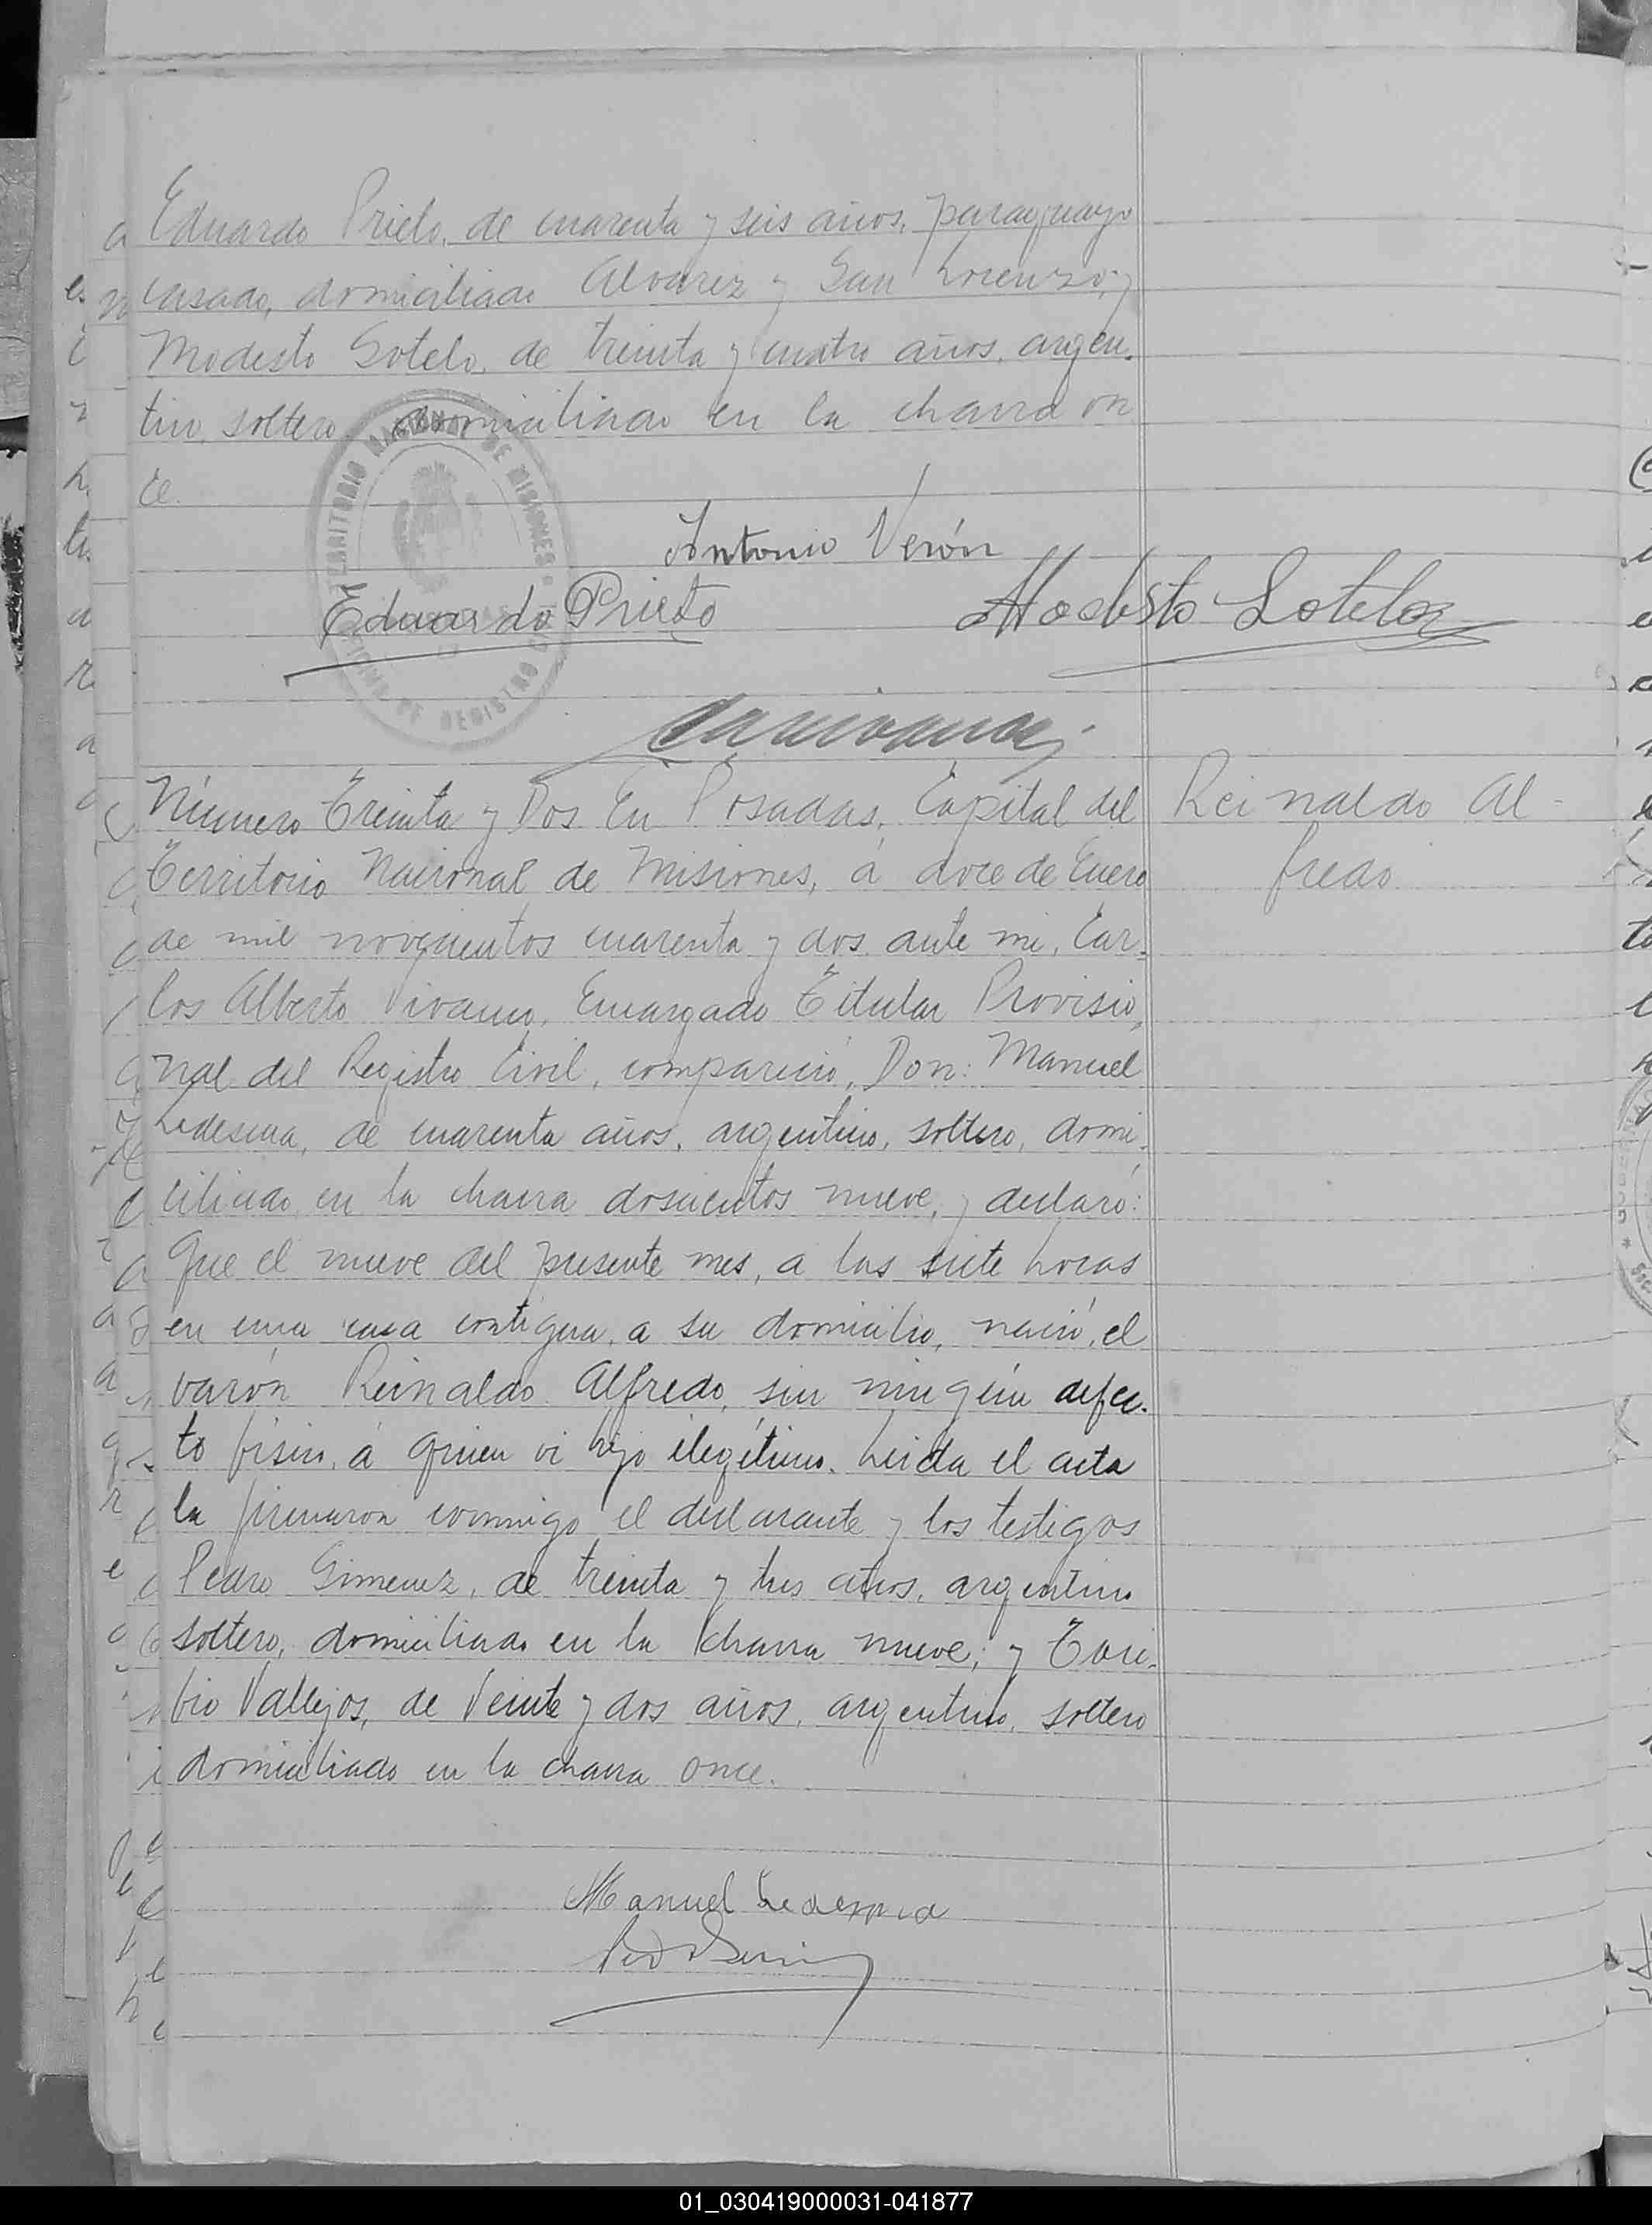 Eduardo Prieto, de cuarenta y seis años, paraguayo
casado, domiciliado Alvarez y San Lorenzo; y
Modesto Sotelo, de treinta y cuatro años, argen-
tino, soltero, domiciliado en la chacra on
ce.
TERRITORIO NACIONAL DE MISIONES
OFICINA DE REGISTRO CIVIL
Antonio Verón
Eduardo Prieto Modesto Sotelo
Número Treinta y Dos En Posadas, Capital del
Reinaldo Al-
fredo
Territorio Nacional de Misiones, á doce de Enero
de mil novecientos cuarenta y dos ante mi, Car-
los Alberto Vivanco, Encargado Titular Provisio-
nal del Registro Civil, compareció, Don: Manuel
Ledesma, de cuarenta años, argentino, soltero, domi-
ciliado en la chacra doscientos nueve, y declaró:
Que el nueve del presente mes, a las siete horas
en una casa contigua, a su domicilio, nació, el
varón Reinaldo Alfredo, sin ningún defec-
to físico, á quien vi hijo ilegítimo. Leida el acta
la firmaron conmigo el declarante y los testigos
Pedro Gimenez, de treinta y tres años, argentino
soltero, domiciliado en la chacra nueve; y Tori-
bio Vallejos, de Veinte y dos años, argentino, soltero
domiciliado en la chacra once.
Manuel Ledesma
01_030419000031-041877